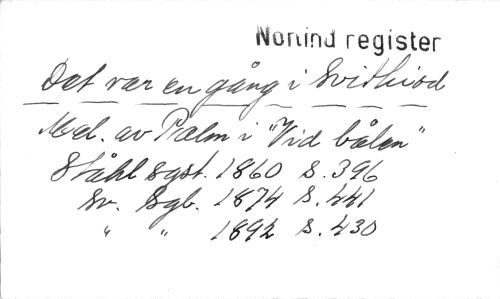 Norlind register
Det var en gång i Svithiod
Mel. av Palm i "Vid bålen"
Ståhl Sgst. 1860 S. 396
Sv. Sgb. 1874 S. 441
" " 1892 S. 430